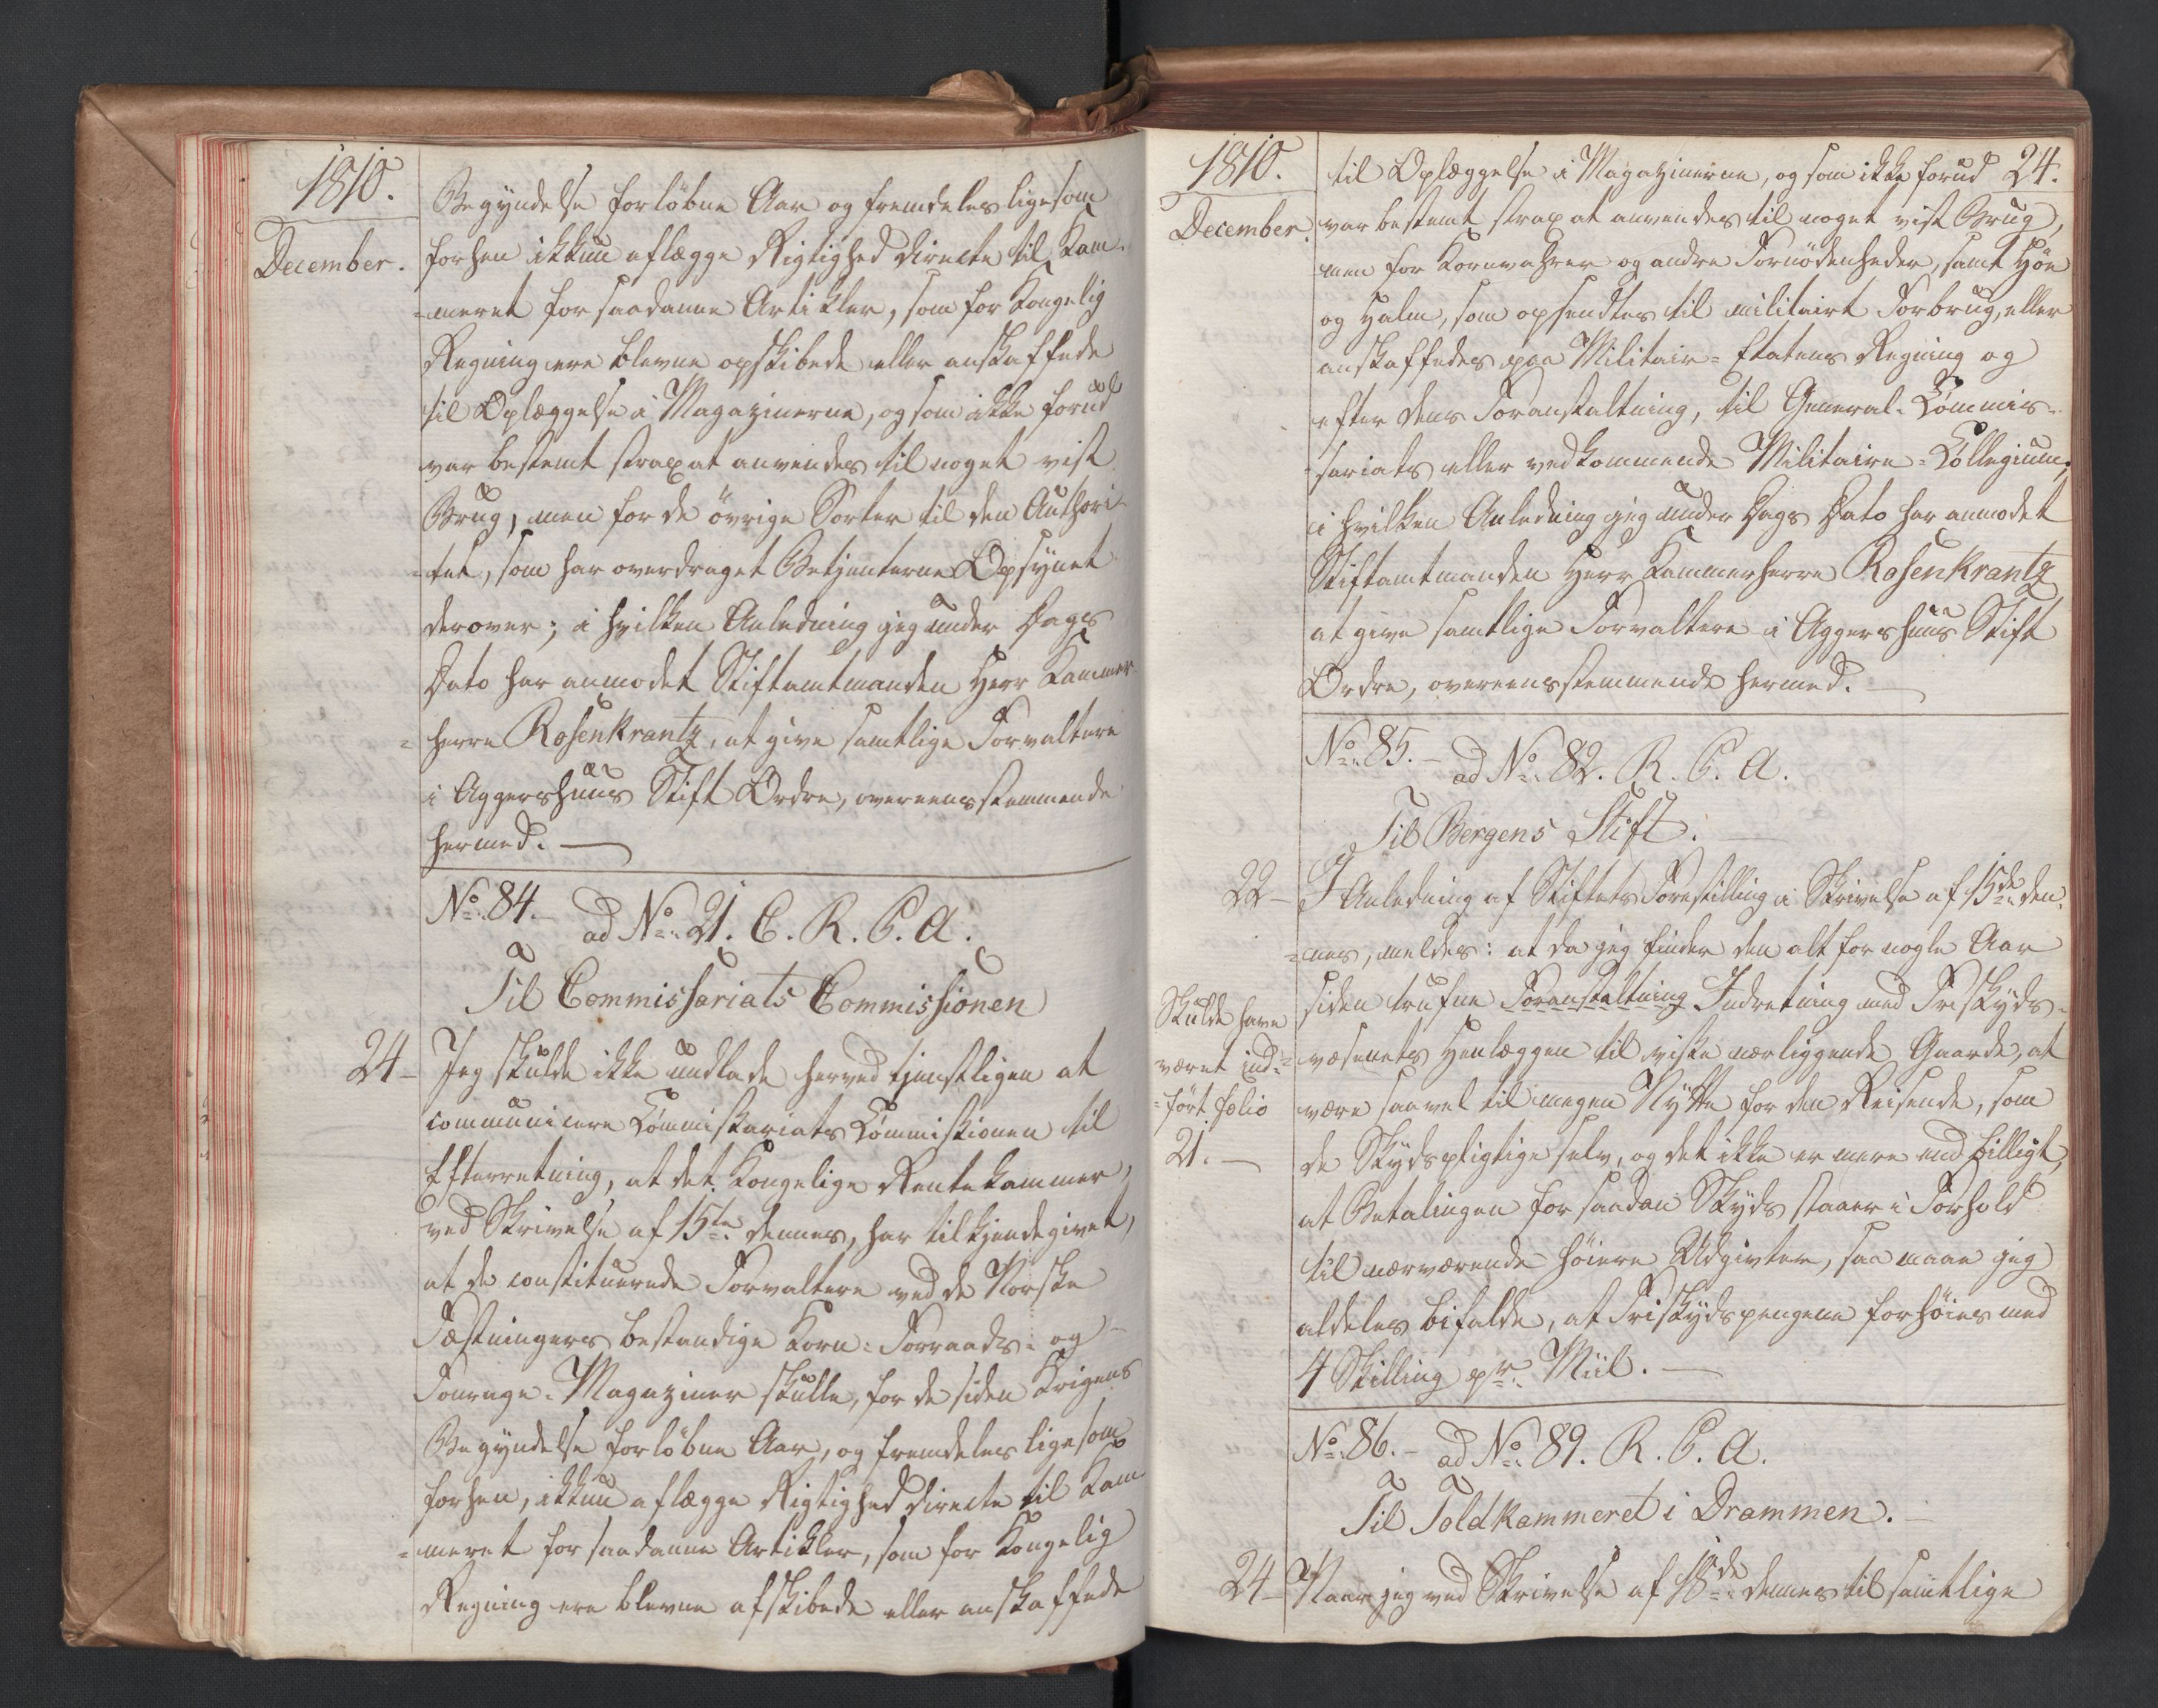 1810.
December.
Begyndelse forløbne Aar og fremdeles ligesom
forhen ikkun aflægge Rigtighed directe til Kam-
=meret for saadanne Artikler, som for Kongelig
Regning ere blevne opskibede eller anskaffede
til Oplæggelse i Magazinerne, og som ikke forud
var bestemt strax at anvendes til noget vist
Brug, men for de øvrige Sorter til den Authori-
=tet, som har overdraget Betjenterne Opsynet
derover; i hvilken Anledning jeg under Dags
Dato har anmodet Stiftamtmanden Herr Kammer-
=herre Rosenkrantz, at give samtlige Forvaltere
i Aggershuus Stift Ordre, overeensstemmende
hermed. —
No. 84. — ad No. 21. C. R. C. A.
Til Commissariats Commissionen
24 — Jeg skulde ikke undlade herved tjenstligen at
communicere Commissariats Commissionen til
Efterretning, at det Kongelige Rentekammer,
ved Skrivelse af 15te dennes, har tilkjendegivet,
at de constituerede Forvaltere ved de Norske
Fæstningers bestandige Korn- Forraads- og
Fourage-Magaziner skulle, for de siden Krigens
Begyndelse forløbne Aar, og fremdeles ligesom
forhen, ikkun aflægge Rigtighed directe til Kam-
=meret for saadanne Artikler, som for Kongelig
Regning ere blevne afskibede eller anskaffede
1810.
24.
December.
til Oplæggelse i Magazinerne, og som ikke forud
var bestemt strax at anvendes til noget vist Brug,
men for Kornvahrer og andre Fornødenheder, samt Høe
og Halm, som opsendtes til militairt Forbrug, eller
anskaffedes paa Militair-Etatens Regning og
efter dens Foranstaltning, til General-Commis-
=sariats eller vedkommende Militaire-Collegium;
i hvilken Anledning jeg under Dags Dato har anmodet
Stiftamtmanden Herr Kammerherre Rosenkrantz
at give samtlige Forvaltere i Aggershuus Stift
Ordre, overeensstemmende hermed. —
No. 85. — ad No. 82. R. C. A.
Til Bergens Stift. —
22 — I Anledning af Stiftets Forestilling i Skrivelse af 15de den-
=nes, meldes: at da jeg finder den alt for nogle Aar
siden trufne Foranstaltning Indretning med Friskyds-
=væsenets Henlæggen til visse nærliggende Gaarde, at
være saavel til megen Nytte for den Reisende, som
de Skydspligtige selv, og det ikke er mere end billigt,
at Betalingen for saadan Skyds staaer i Forhold
til nærværende høiere Udgivter, saa maae jeg
aldeles bifalde, at Friskydspengene forhøies med
4 Skilling pr. Miil. —
Skulde have
været ind-
=ført folio
21. —
No. 86. — ad No. 89. R. C. A.
Til Toldkammeret i Drammen. —
24 — Naar jeg ved Skrivelse af 18de dennes til samtlige